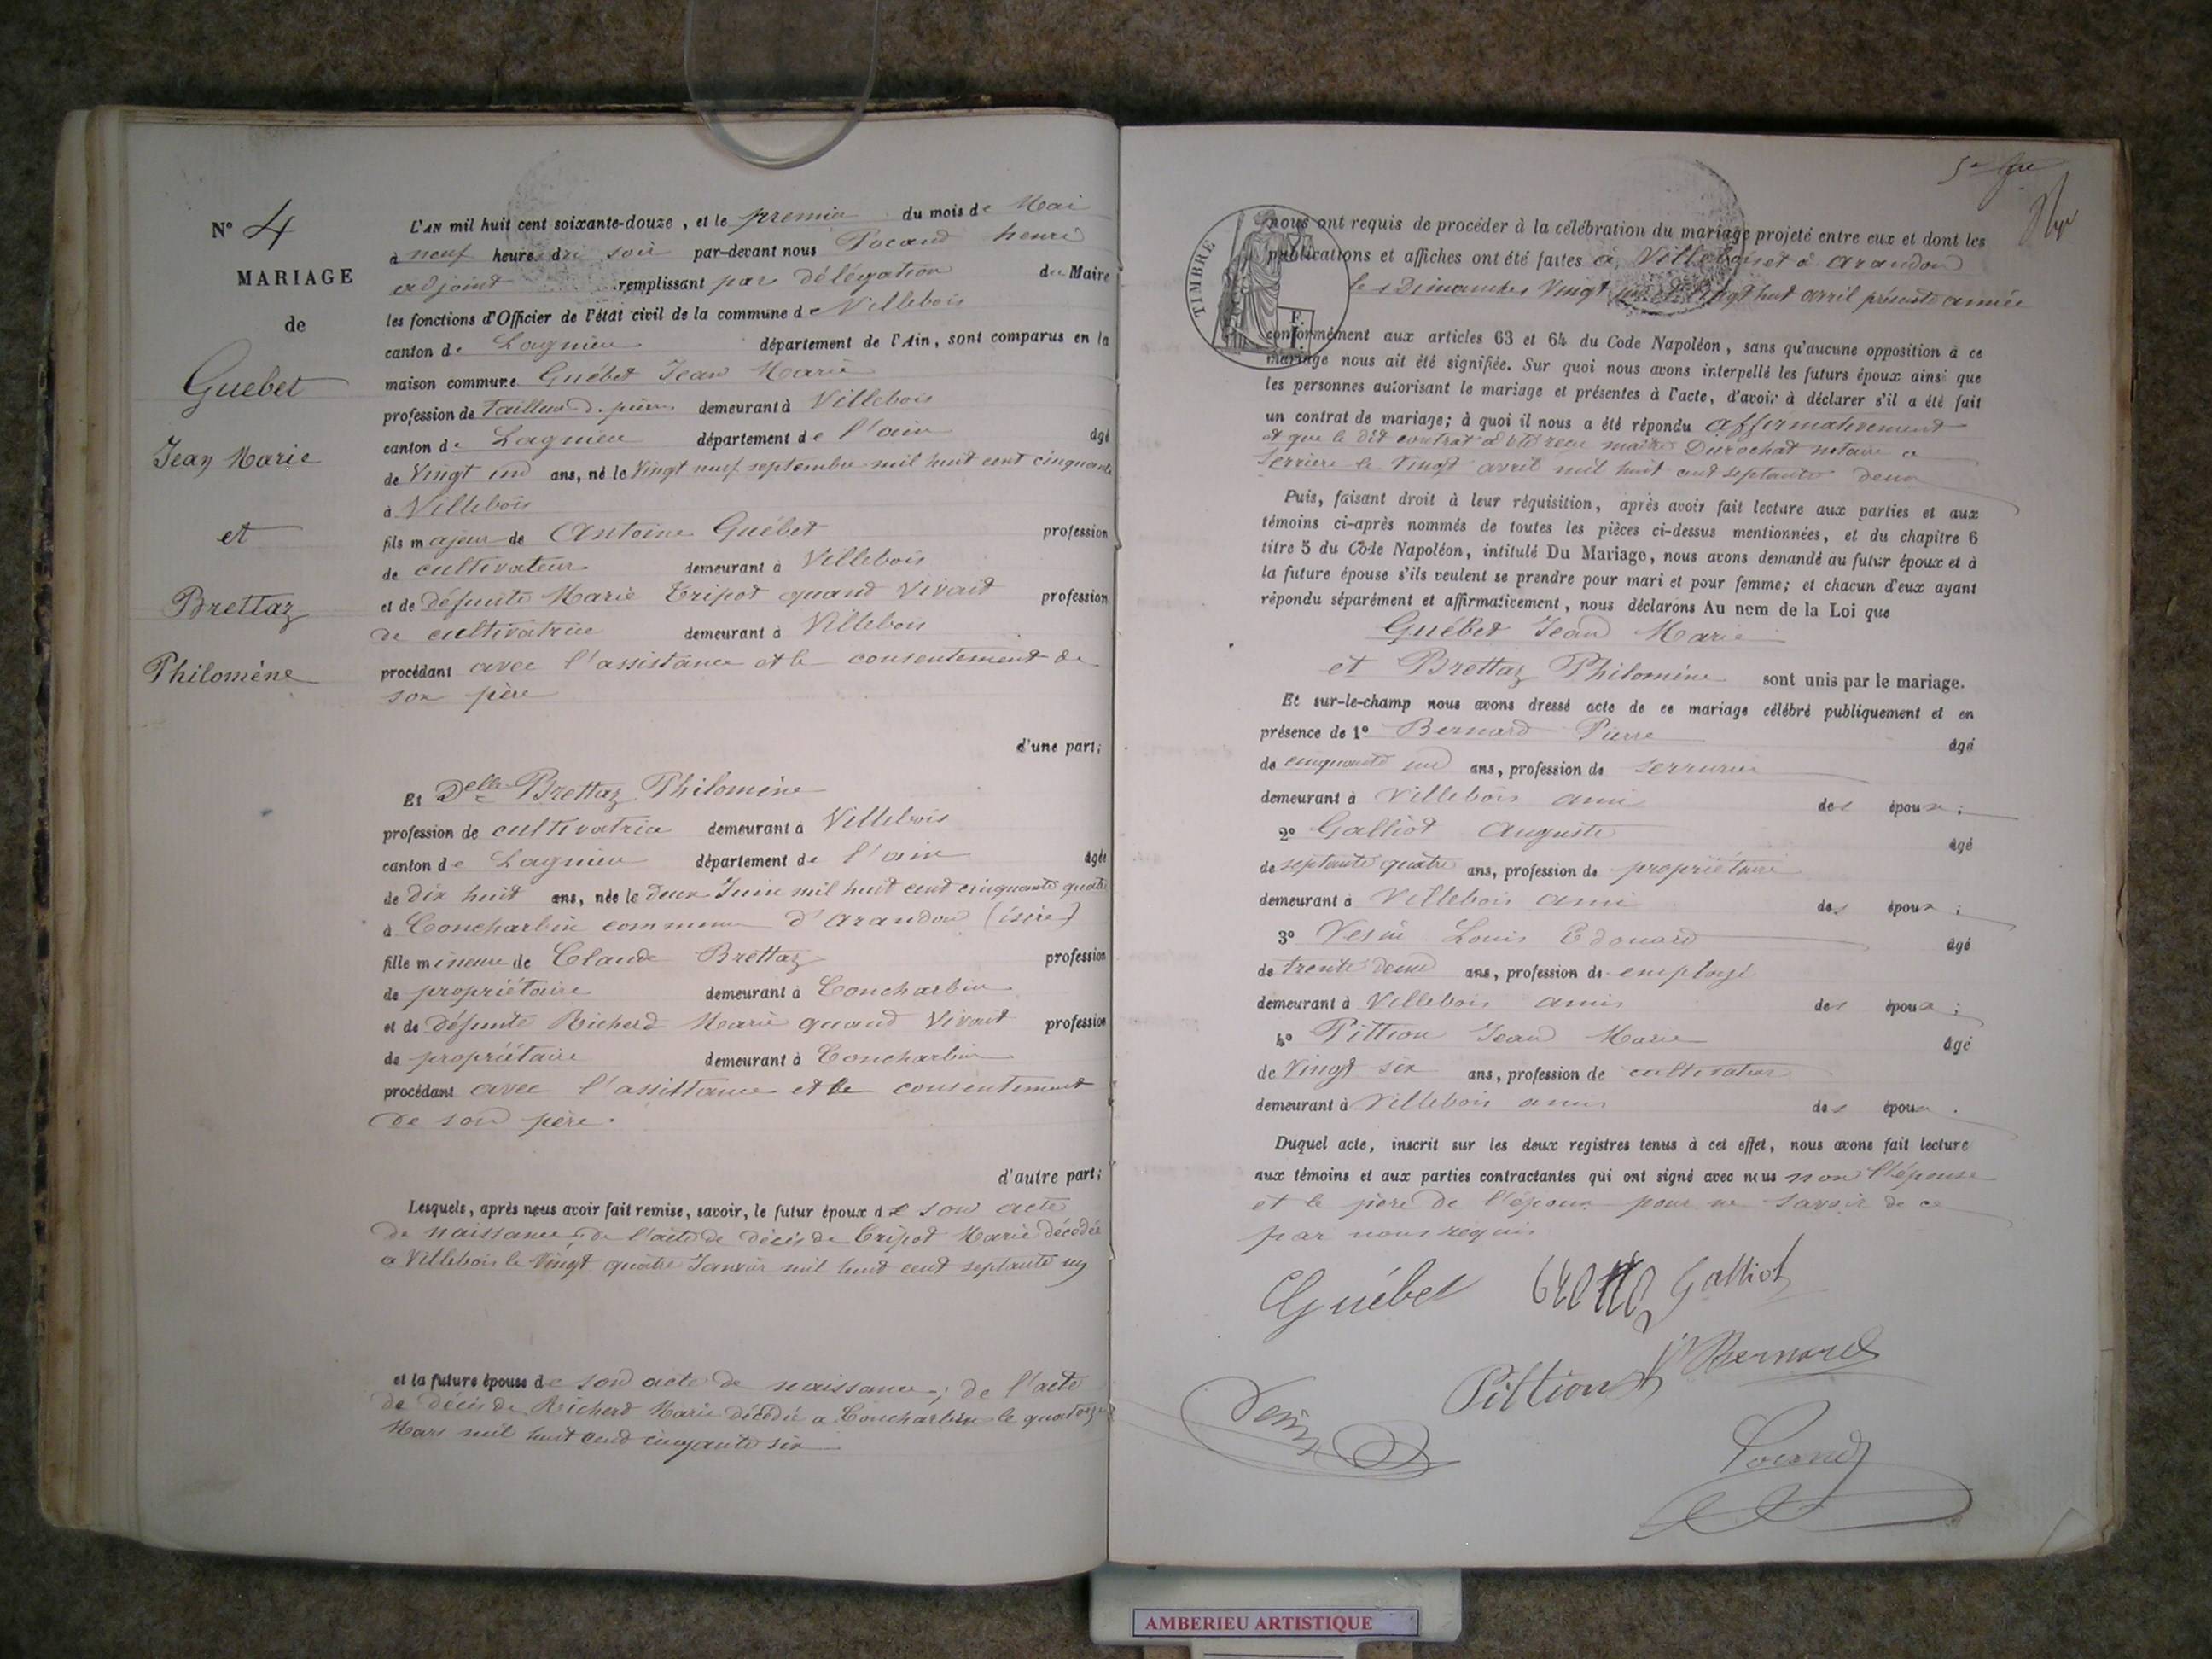 N° 4
MARIAGE
de
Guebet
Jean Marie
et
Brettaz
Philomène
L'AN mil huit cent soixante-douze, et le premier du mois de Mai
à neuf heures du soir par-devant nous Pocand henri
adjoint remplissant par délégation du Maire
les fonctions d'Officier de l'état civil de la commune de Villebois
canton de Lagnieu département de l'Ain, sont comparus en la
maison commune Guébet Jean Marie
profession de Tailleur d. pierre demeurant à Villebois
canton de Lagnieu département de l'ain âgé
de Vingt un ans, né le Vingt neuf septembre mil huit cent cinquante
à Villebois
fils majeur de Antoine Guébet profession
de cultivateur demeurant à Villebois
et de défunte Marie Tripot quand Vivait profession
de cultivatrice demeurant à Villebois
procédant avec l'assistance et le consentement de
son père
d'une part;
Et Delle Brettaz Philomène
profession de cultivatrice demeurant à Villebois
canton de Lagnieu département de l'ain âgée
de dix huit ans, née le deux Juin mil huit cent cinquante quatre
à Concharbin commune d'arandon (isère)
fille mineure de Claude Brettaz profession
de propriétaire demeurant à Concharbin
et de défunte Richerd Marie quand Vivait profession
de propriétaire demeurant à Concharbin
procédant avec l'assittance et le consentement
de son père.
d'autre part;
Lesquels, après nous avoir fait remise, savoir, le futur époux de son acte
de naissance, de l'acte de décès de Tripot Marie décédée
a Villebois le Vingt quatre Janvier mil huit cent septante un
et la future épouse de son acte de naissance; de l'acte
de décès de Richerd Marie décédée a Concharbin le quatorze
Mars mil huit cent cinquante six
5e
nous ont requis de procéder à la célébration du mariage projeté entre eux et dont les
publications et affiches ont été faites à Villebois et à arandon
les Dimanches Vingt un et Vingt huit avril présente année
TIMBRE
conformément aux articles 63 et 64 du Code Napoléon, sans qu'aucune opposition à ce
mariage nous ait été signifiée. Sur quoi nous avons interpellé les futurs époux ainsi que
les personnes autorisant le mariage et présentes à l'acte, d'avoir à déclarer s'il a été fait
un contrat de mariage; à quoi il nous a été répondu affirmativement
et que le dit contrat a été reçu maitre Durochat notaire a
Serriere le Vingt avril mil huit cent septante deux
Puis, faisant droit à leur réquisition, après avoir fait lecture aux parties et aux
témoins ci-après nommés de toutes les pièces ci-dessus mentionnées, et du chapitre 6
titre 5 du Code Napoléon, intitulé Du Mariage, nous avons demandé au futur époux et à
la future épouse s'ils veulent se prendre pour mari et pour femme; et chacun d'eux ayant
répondu séparément et affirmativement, nous déclarons Au nom de la Loi que
Guébet Jean Marie
et Brettaz Philomène sont unis par le mariage.
Et sur-le-champ nous avons dressé acte de ce mariage célébré publiquement et en
présence de 1° Bernard Pierre âgé
de cinquante un ans, profession de serrurier
demeurant à Villebois ami des époux;
2° Galliot Auguste âgé
de septante quatre ans, profession de propriétaire
demeurant à Villebois ami des époux;
3° Vesin Louis Edouard âgé
de trente deux ans, profession de employé
demeurant à Villebois amis des époux;
4° Pittion Jean Marie âgé
de Vingt six ans, profession de cultivateur
demeurant à Villebois amis des époux.
Duquel acte, inscrit sur les deux registres tenus à cet effet, nous avons fait lecture
aux témoins et aux parties contractantes qui ont signé avec nous non l'épouse
et le père de l'époux pour ne savoir de ce
par nous requis
Guébet Galliot
Pittion Bernard
Vesin
Pocand
AMBERIEU ARTISTIQUE